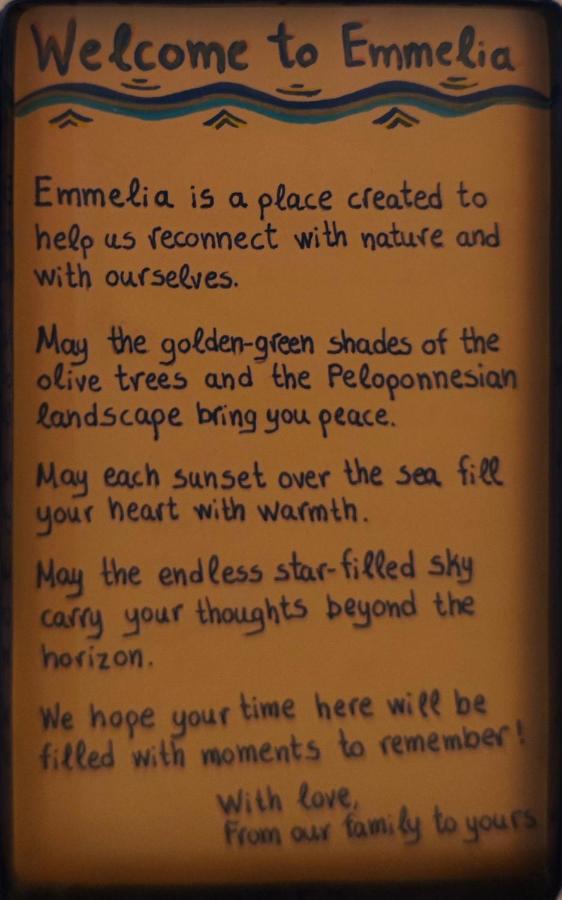 Welcome to Emmelia
Emmelia is a place created to
help us reconnect with nature and
with ourselves.
May the golden-green shades of the
olive trees and the Peloponnesian
landscape bring you peace.
May each sunset over the sea fill
your heart with warmth.
May the endless star-filled sky
carry your thoughts beyond the
horizon.
We hope your time here will be
filled with moments to remember!
With love,
From our family to yours